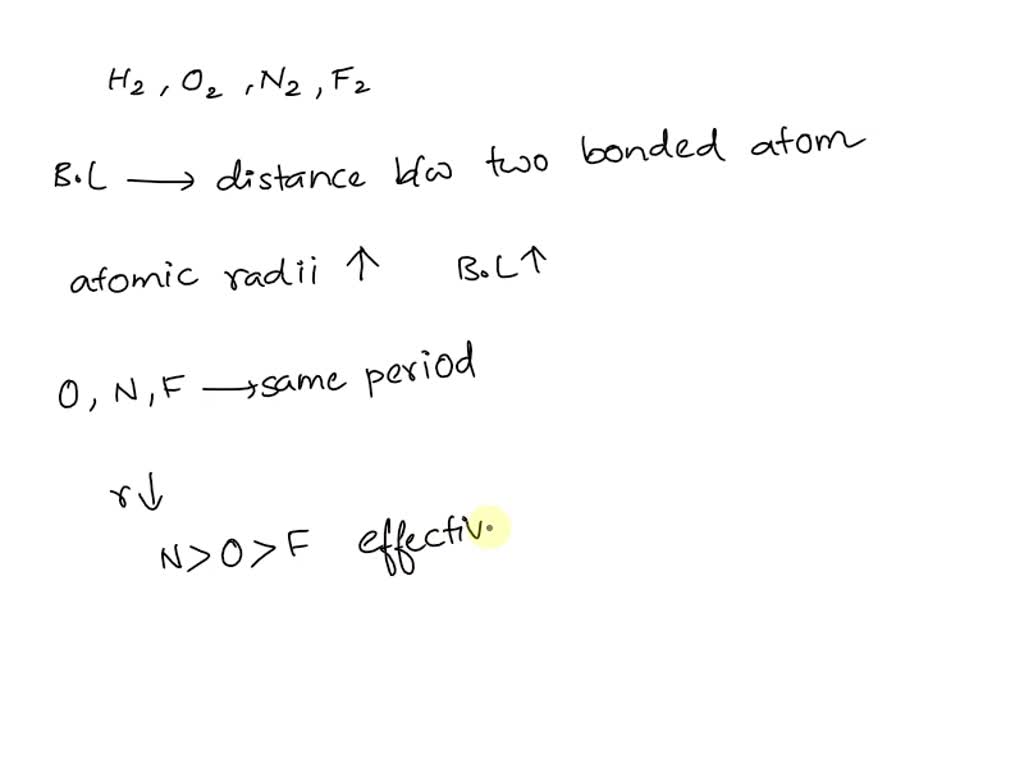 H₂, O₂, N₂, F₂
B.L → distance b/w two bonded atom
atomic radii ↑ B.L ↑
O, N, F → same period
r↓
N > O > F effectiv